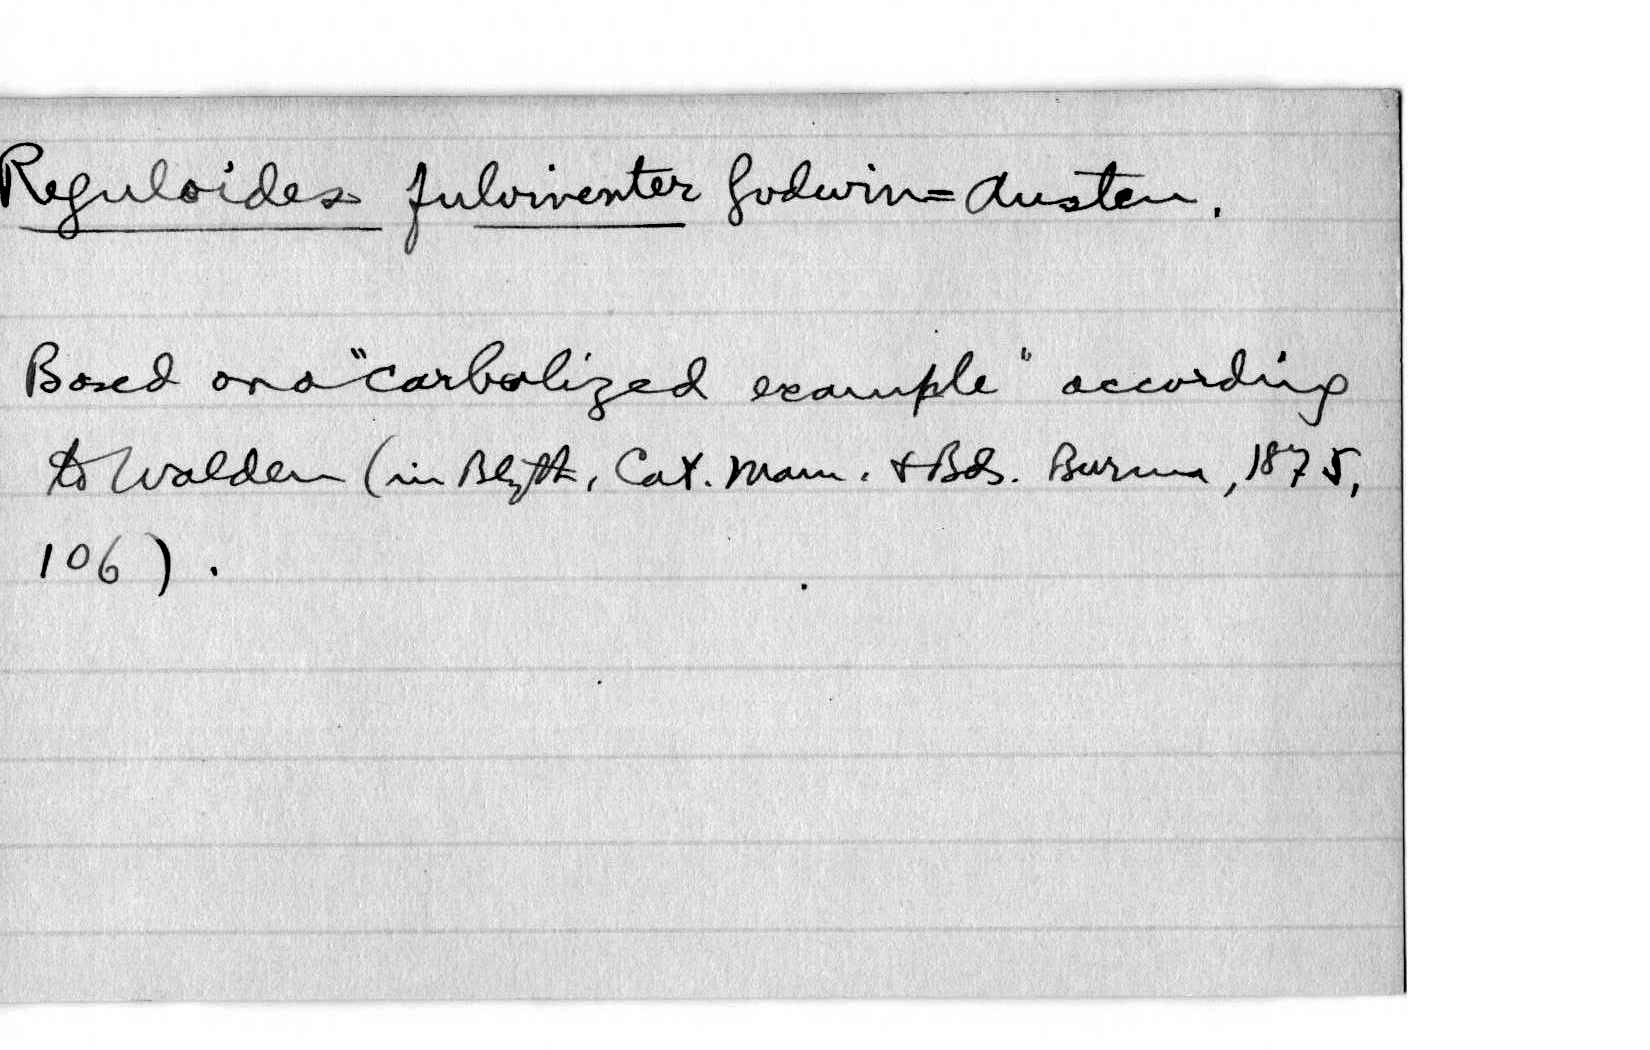 Reguloides fulviventer Godwin=Austen.
Based on a "carbolized example" according
to Walden (in Blyth, Cat. Mam. & Bds. Burma, 1875,
106).